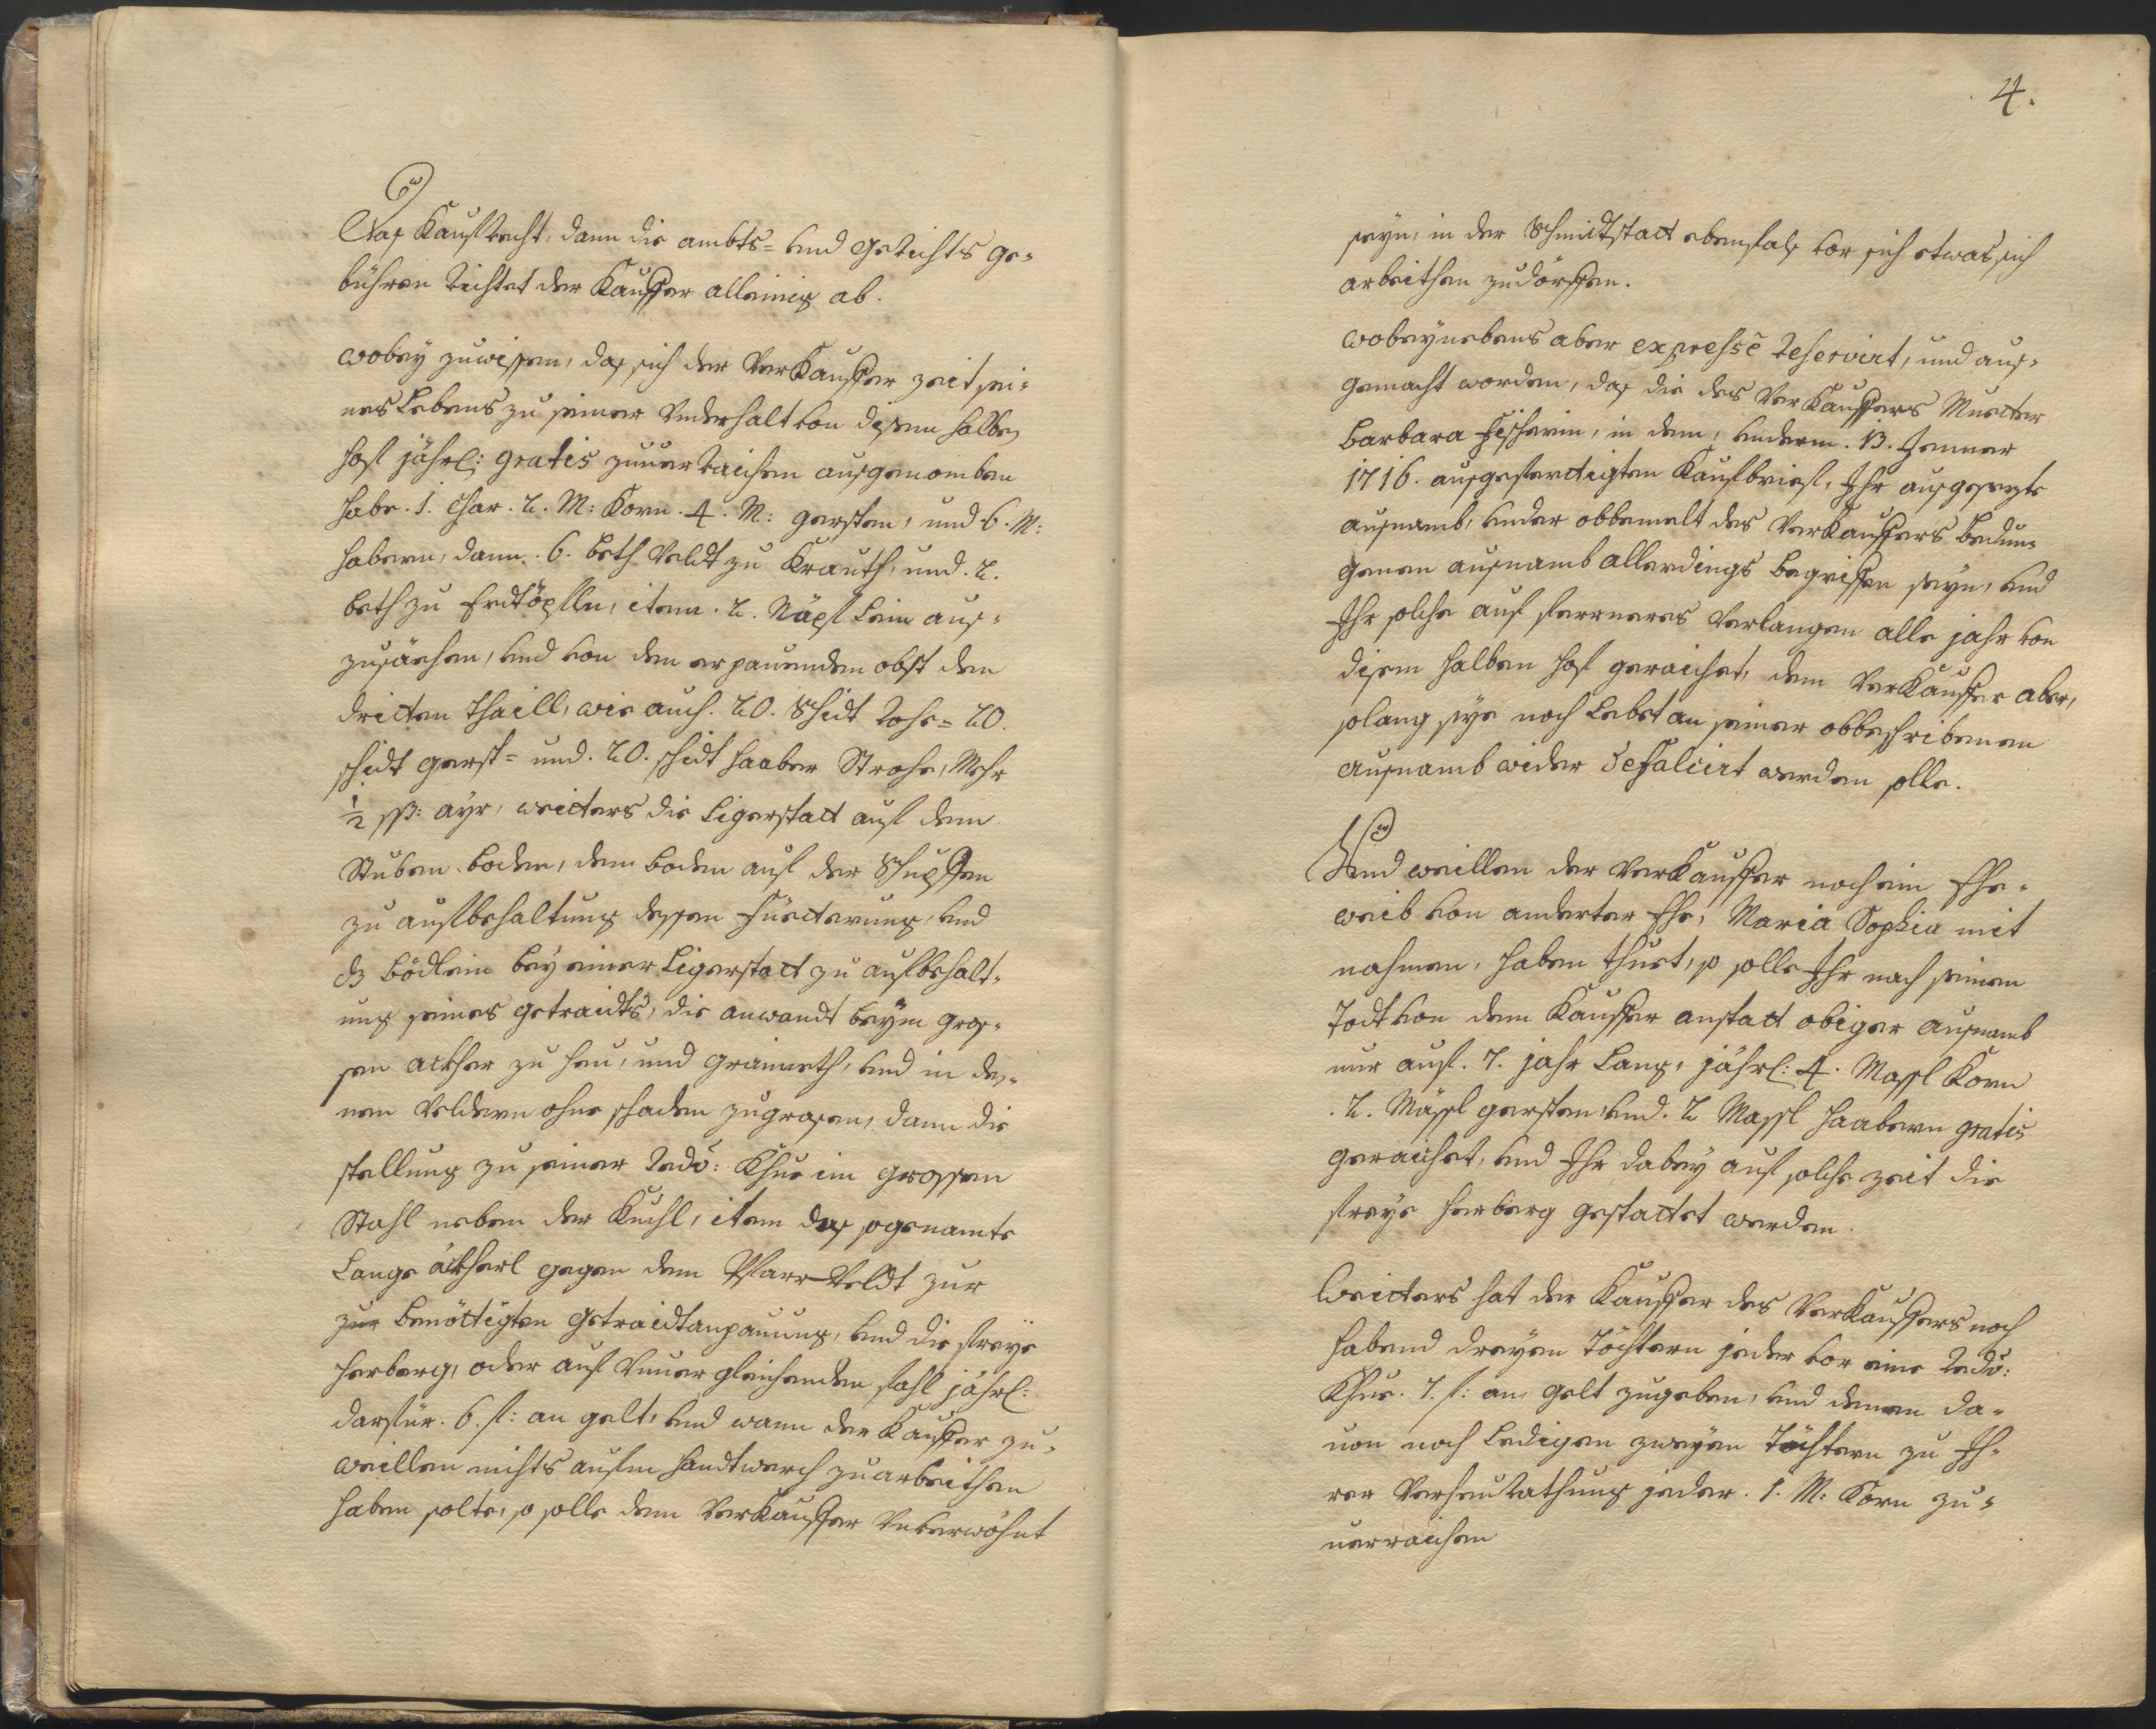 Das Kaufrecht, dann die ambts= und gerichts ge=
bühren richtet der Kauffer alleinig ab.
wobey zuwissen, das sich der Verkauffer zeit sei=
nes Lebens zu seiner Underhalt von disem halben
hof jährl: gratis zuuerraichen ausgenomben
habe. 1. Char. 2. M: Korn. 4. M: gersten, und 6. M:
habern, dann. 6. beth Veldt zu Krauth, und. 2.
beth zu Erdtöpflln, item. 2. Näpf Lein aus=
zusäehen, und von den erpauenden obst den
dritten thaill, wie auch. 20. Schidt Rohr= 20.
schidt gerst= und. 20. schidt haaber Strohe, Mehr
1/2 ßß: ayr, weitters die Ligerstatt auf dem
Stuben boden, dem boden auf der Schupffen
zu aufbehaltung dessen Füetterung, und
dz bödtlein bey einer Ligerstatt zu aufbehalt=
ung seines getraidts, die anwandt beym gros=
sen ackher zu heu, und graimeth, und in de=
nen Veldern ohne schaden zugrasen, dann die
stellung zu seiner redo: Khue im grossen
Stahl neben der Kuchl, item das sogenamte
Lange ackherl gegen dem Pfarr-Veldt zur
zur benöttigten getraidtanpauung, und die freye
herberg, oder auf Unuergleichenden fahl jährl:
darfür. 6. f: an gelt, und wann der Kauffer zu=
weillen nichts aufm handtwerch zuarbeithen
haben solte, so solle dem Verkauffer Unverwöhnt
4.
seyn, in der Schmidtstatt ebenfals vor sich etwas sich
arbeithen zudörffen.
wobeynebens aber expressè reservirt, und aus=
gemacht worden, das die des Verkauffers Muetter
Barbara Fischerin, in dem, underm. 13. Jenner
1716. ausgefertigten Kaufbrief, Ihr ausgesezte
ausnamb, under obbemelt des Verkauffers bedun=
genen ausnamb allerdings begriffen seyn, und
Ihr solche auf ferrneres Verlangen alle jahr von
disem halben hof geraichet, dem Verkauffer aber,
solang sye noch Lebet an seiner obbeschribenen
ausnamb wider defalcirt werden solle.
Und weillen der Verkauffer noch ein Ehe=
weib von anderter Ehe, Maria Sophia mit
nahmen, haben thuet, so solle Ihr nach seinem
Todt von dem Kauffer anstatt obiger ausnamb
nur auf. 7. jahr Lang, jährl: 4. Massl Korn
. 2. Mässl gersten, und. 2 Massl haabern gratis
geraichet, und Ihr dabey auf solche zeit die
freye herberg gestattet werden.
Weitters hat der Kauffer des Verkauffers noch
habend dreyen Töchtern jeder vor eine redo:
Khue. 7. f: an gelt zugeben, und denen da=
uon noch Ledigen zweyen Töchtern zu Ih=
rer Verheurathung jeder. 1. M: Korn zu=
uerraichen